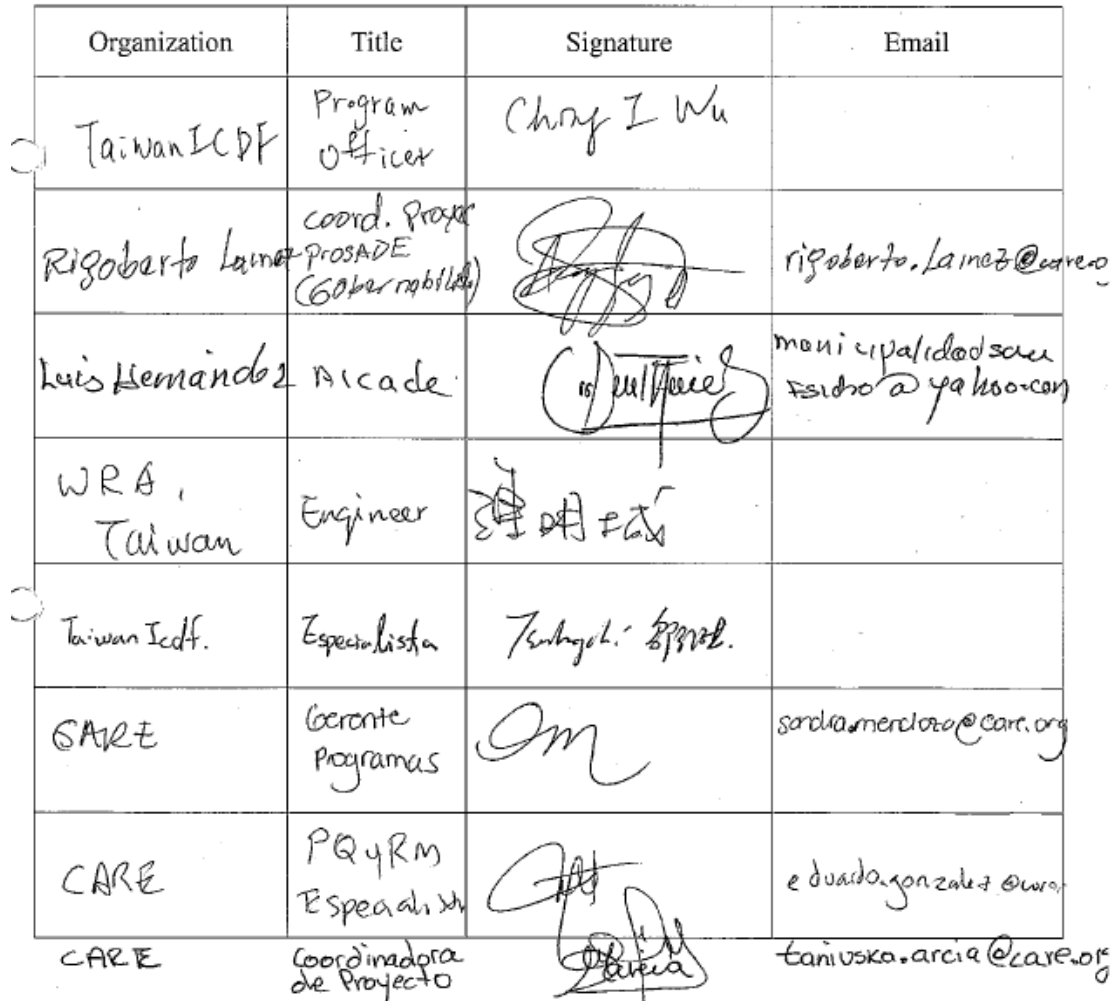 Organization Title Signature Email
TaiwanICDF Program Officer Chong I Wu
Rigoberto Lainez coord. Proyec ProSADE (Gobernabilidad) rigoberto.Lainez@care.o
Luis Hernández Alcade municipalidadsan Isidro@yahoo.com
WRA, Taiwan Engineer 連明誠
Taiwan Icdf. Especialista
CARE Gerente Programas sandra.mendoza@care.org
CARE PQyRM Especialista eduardo.gonzalez@care.
CARE Coordinadora de Proyecto Garcia taniuska.arcia@care.org